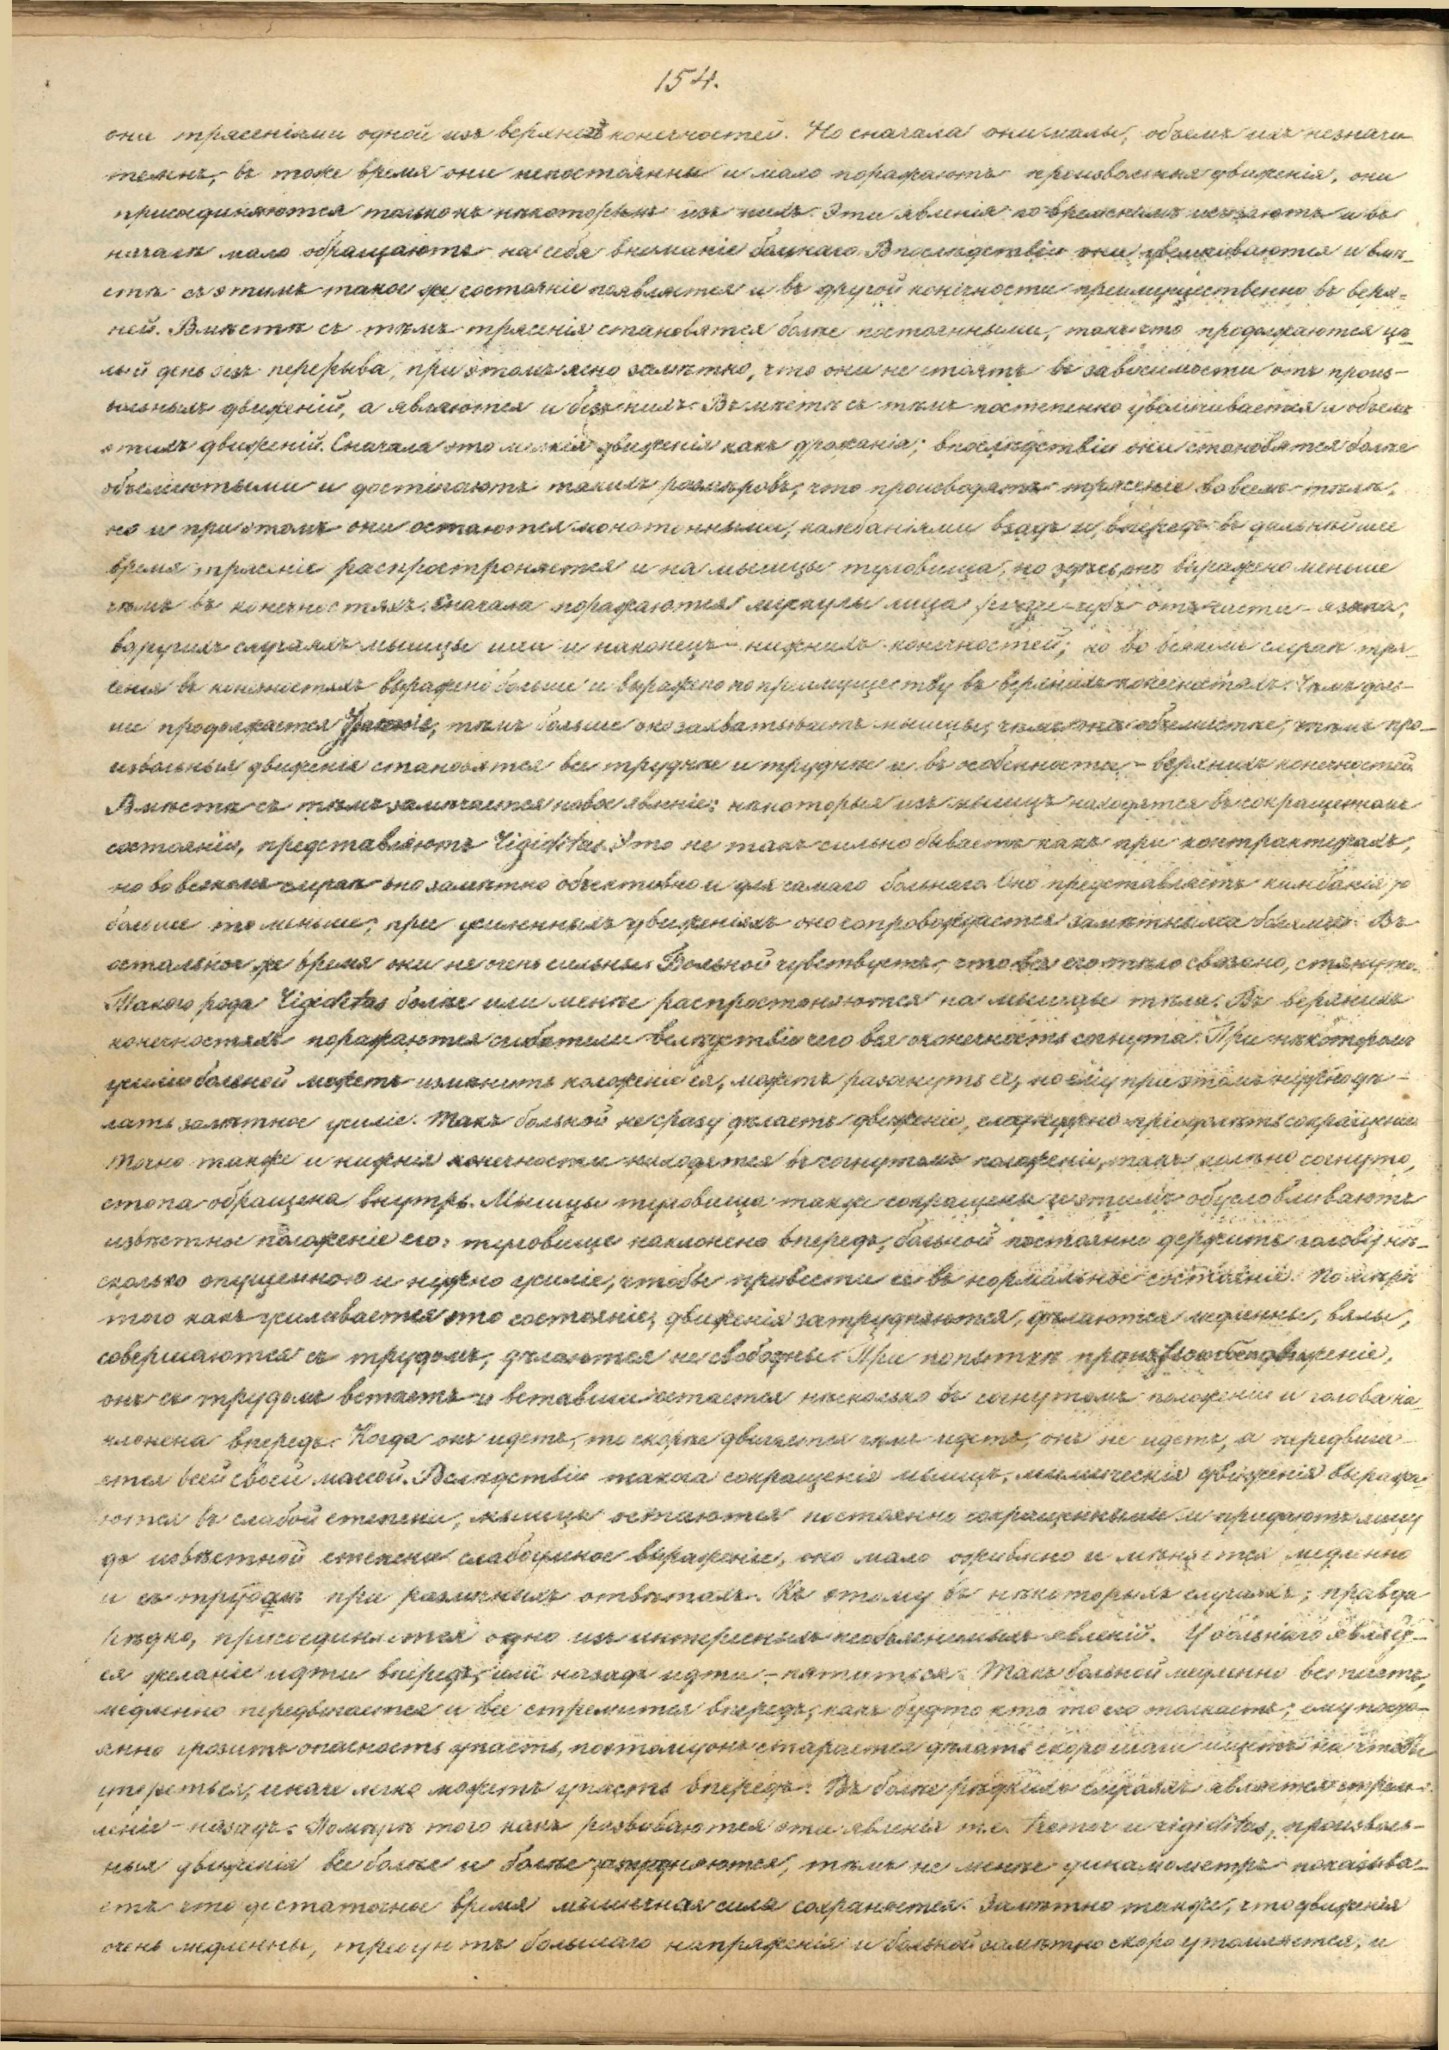 154.
они трясенiями одной изъ верхней конечностей. Но сначала они малы, объемъ ихъ незначи
теленъ, въ тоже время они непостоянны и мало поражаютъ произвольныя движенiя, они
присоединяются только къ нѣкоторымъ изъ нихъ. Эти явленiя по временамъ исчезаютъ и въ
началѣ мало обращаютъ на себя вниманiе больнаго. Впослѣдствiи они увеличиваются и вмѣ-
стѣ съ этимъ такое же состоянiе появляется и въ другой конечности преимущественно въ верх-
ней. Вмѣстѣ съ тѣмъ трясенiя становятся болѣе постоянными, такъ что продолжаются цѣ-
лый день безъ перерыва, при этомъ ясно замѣтно, что они не стоятъ въ зависимости отъ произ-
вольныхъ движенiй, а являются и безъ нихъ. Вмѣстѣ съ тѣмъ постепенно увеличивается и объемъ
этихъ движенiй. Сначала это мелкiя движенiя какъ дрожанiя; впослѣдствiи они становятся болѣе
объемистыми и достигаютъ такихъ размѣровъ, что производятъ трясенiе во всемъ тѣлѣ,
но и при этомъ они остаются монотонными, колебанiями взадъ и впередъ. въ дальнѣйшее
время трясенiе распространяется и на мышцы туловища, но здѣсь оно выражено меньше
чѣмъ въ конечностяхъ. Сначала поражаются мускулы лица губъ отчасти - языка,
въ другихъ случаяхъ мышцы шеи и наконецъ - нижнихъ конечностей; но во всякомъ случаѣ тря-
сенiя въ конечностяхъ выражено больше и выражено по преимуществу въ верхнихъ конечностяхъ. Чѣмъ доль-
ше продолжается, тѣмъ больше оно захватываетъ мышцы, чѣмъ оно объемистѣе, тѣмъ про-
извольныя движенiя становятся все труднѣе и труднѣе и въ особенности - верхнихъ конечностей
Вмѣстѣ съ тѣмъ замѣчается новое явленiе: нѣкоторыя изъ мышцъ находятся въ сокращенномъ
состоянiи, представляютъ rigiditas. Это не такъ сильно бываетъ какъ при контрактурахъ,
но во всякомъ случаѣ оно замѣтно объективно и для самаго больнаго. Оно представляетъ колебанiя то
больше то меньше; при усиленныхъ движенiяхъ оно сопровождается замѣтными болями. Въ
остальное же время они не очень сильны. Больной чувствуетъ, что все его тѣло связано, стянуто.
Такого рода rigiditas болѣе или менѣе распространяются на мышцы тѣла. Въ верхнихъ
конечностяхъ поражаются сгибатели вслѣдствiе чего вся конечность согнута. При нѣкоторомъ
усилiи больной можетъ измѣнить положенiе ея, можетъ разогнуть её, но ему при этомъ нужно дѣ-
лать замѣтное усилiе. Такъ больной не сразу дѣлаетъ движенiе, ему нужно преодолѣть сокращенiе
Точно также и нижнiя конечности находятся въ согнутомъ положенiи, такъ колѣно согнуто,
стопа обращена внутрь. Мышцы туловища также сокращены и этимъ обусловливаютъ
извѣстное положенiе его: туловище наклонено впередъ, больной постоянно держитъ голову нѣ-
сколько опущенною и нужно усилiе, чтобы привести ее въ нормальное состоянiе. По мѣрѣ
того какъ усиливается это состоянiе, движенiя затрудняются, дѣлаются медленны, вялы,
совершаются съ трудомъ, дѣлаются не свободны. При попыткѣ произвести движенiе,
онъ съ трудомъ встаетъ и вставши остается нѣсколько въ согнутомъ положенiи и голова на-
клонена впередъ. Когда онъ идетъ, то скорѣе двигается чѣмъ идетъ, онъ не идетъ, а передвига-
ется всей своей массой. Вслѣдствiи такого сокращенiя мышцъ, мимическiя движенiя выража-
ются въ слабой степени, мышцы остаются постоянно сокращенными и придаютъ лицу
до извѣстной степени слабоумное выраженiе, оно мало оживлено и мѣняется медленно
и съ трудомъ при различныхъ отвѣтахъ. Къ этому въ нѣкоторыхъ случаяхъ, правда
рѣдко, присоединяется одно изъ интересныхъ необъяснимыхъ явленiй. У больнаго являет-
ся желанiе идти впередъ, или назадъ идти - пятиться. Такъ больной медленно встаетъ,
медленно передвигается и все стремится впередъ, какъ будто кто то его толкаетъ; ему посто-
янно грозитъ опасность упасть, поэтому онъ старается дѣлать скоро шаги и на чтобы
упереться, иначе легко можетъ упасть впередъ. Въ болѣе рѣдкихъ случаяхъ является стрем-
ленiе - назадъ. По мѣрѣ того какъ развиваются эти явленiя т.е. tremor и rigiditas, произволь-
ныя движенiя все болѣе и болѣе затрудняются, тѣмъ не менѣе динамометръ показыва-
етъ что достаточное время мышечная сила сохраняется. Замѣтно также, что движенiя
очень медленны, требуютъ большаго напряженiя и больной замѣтно скоро утомляется, и